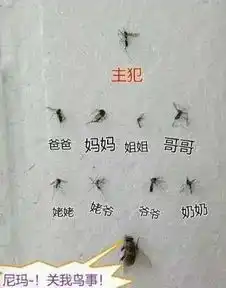 主犯
爸爸 妈妈 姐姐 哥哥
姥姥 姥爷 爷爷 奶奶
尼玛-！关我鸟事！